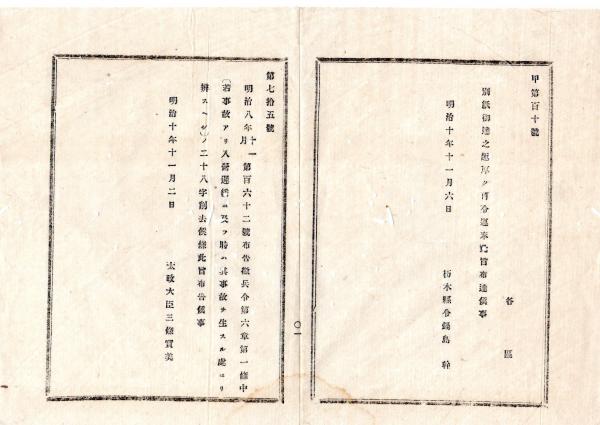 甲第百十號
各區
別紙御達之趣厚ク
旨布達候事
明治十年十一月六日
栃木縣令鍋島幹
第七拾五號
明治八年十一月第百六十二號布告徵兵令第六章第一條中
(若事故アリ入營遲緩ニ及フ時ハ其事故ヲ生スル處ヨリ
辨スヘシ)ノ二十八字削去候條此旨布告候事
明治十年十一月二日
太政大臣三條實美